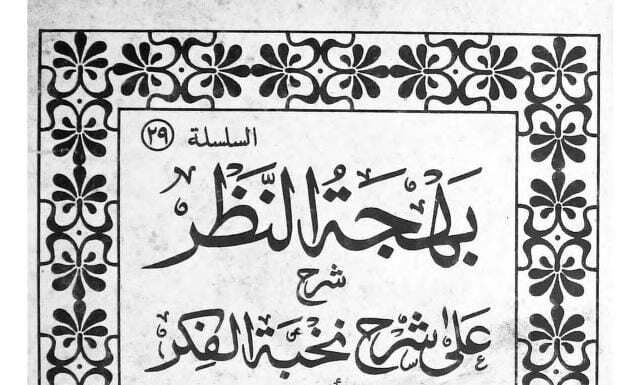 السلسلة ٢٩
بَهْجَةُ النَّظَر
شرح
على شرح نخبة الفكر